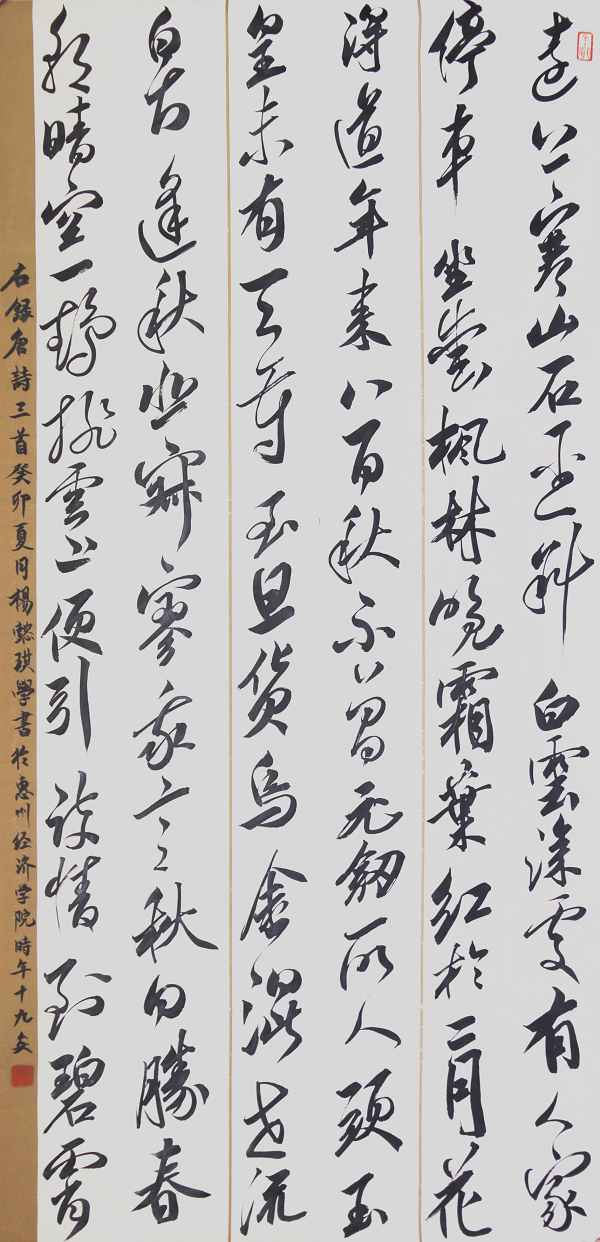 遠上寒山石径斜白雲深處有人家
停車坐愛楓林晚霜葉紅於二月花
得道年来八百秋不曾飛劒取人頭玉
皇未有天符至且貨烏金混世流
自古逢秋悲寂寥我言秋日勝春
朝晴空一鶴排雲上便引詩情到碧霄
右録唐詩三首癸卯夏月楊懿琪學書於惠州经济学院時年十九矣